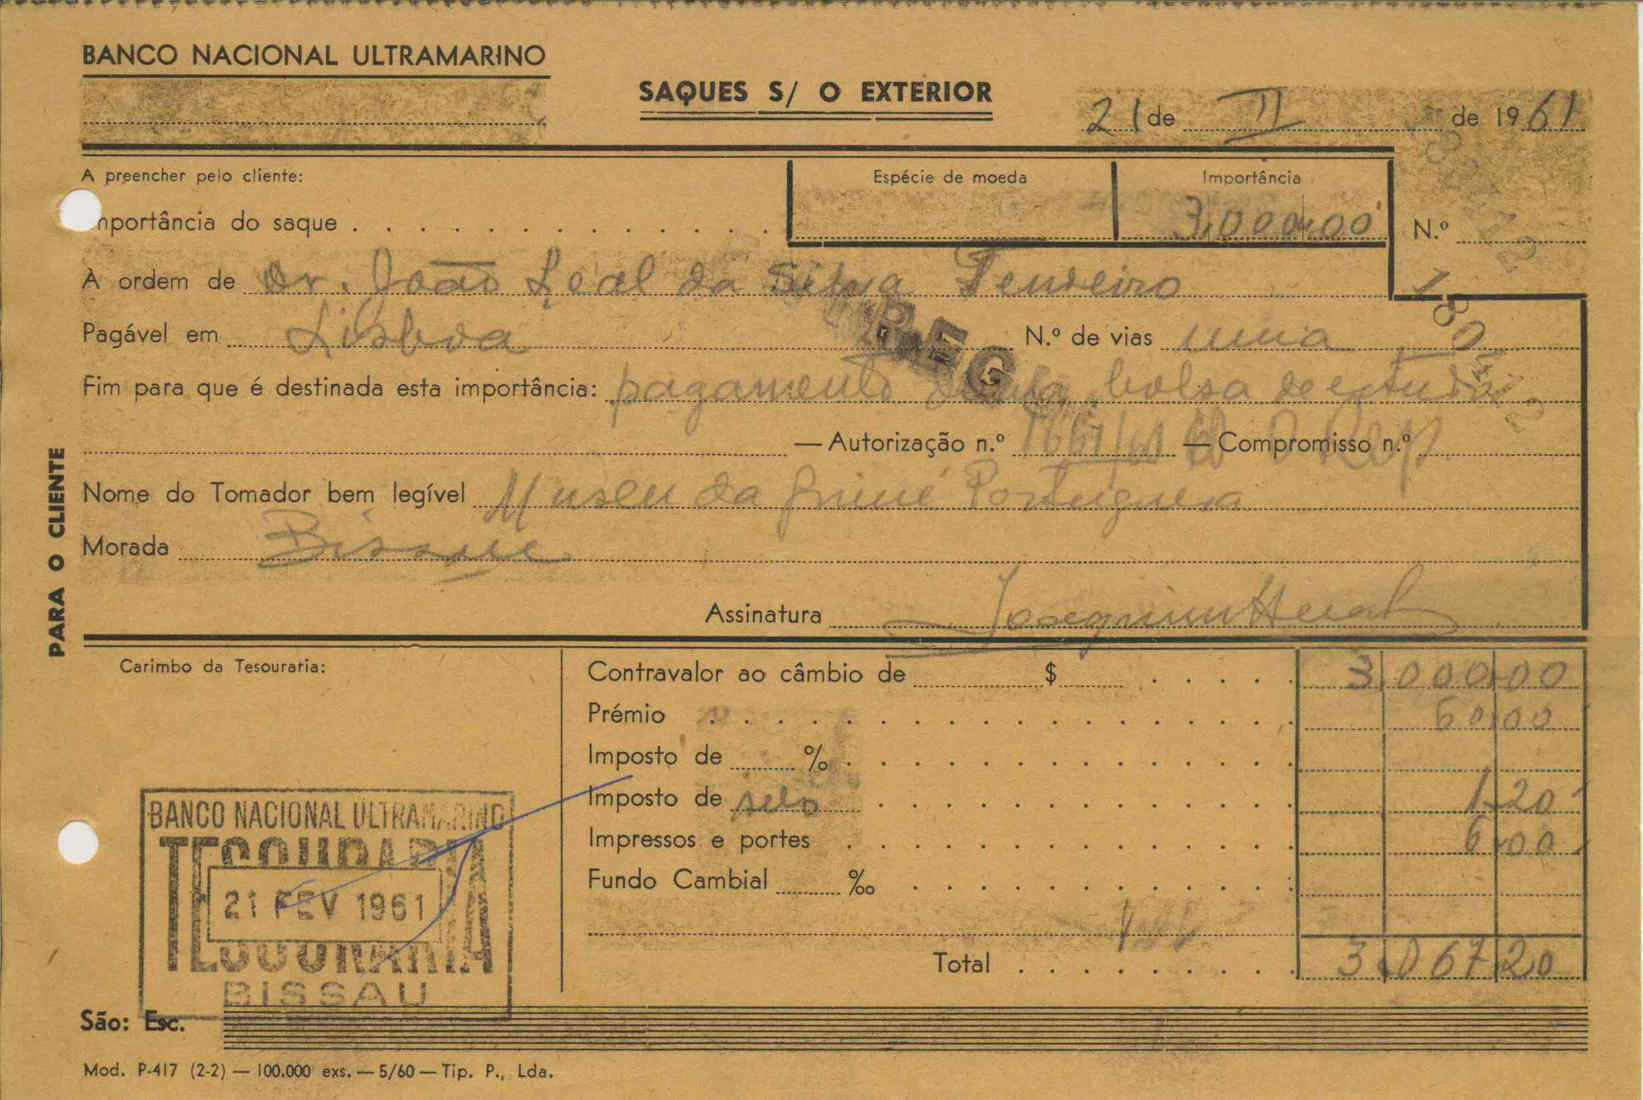 BANCO NACIONAL ULTRAMARINO
SAQUES S/ O EXTERIOR
21 de II de 1961
A preencher pelo cliente:
Espécie de moeda
Importância
mportância do saque
3.000,00
N.º
À ordem de Dr. João Leal da Silva Tendeiro
Pagável em Lisboa N.º de vias uma
Fim para que é destinada esta importância: pagamento bolsa de estudo
— Autorização n.º — Compromisso n.º
Nome do Tomador bem legível Museu da Guiné Portuguesa
Morada Bissau
Assinatura
PARA O CLIENTE
Carimbo da Tesouraria:
Contravalor ao câmbio de $ 3.000,00
Prémio 60,00
Imposto de %
Imposto de selo 1,20
Impressos e portes 6,00
Fundo Cambial ‰
Total 3.067,20
BANCO NACIONAL ULTRAMARINO
TESOURARIA
21 FEV 1961
TESOURARIA
BISSAU
São: Esc.
Mod. P-417 (2-2) — 100.000 exs. — 5/60 — Tip. P., Lda.